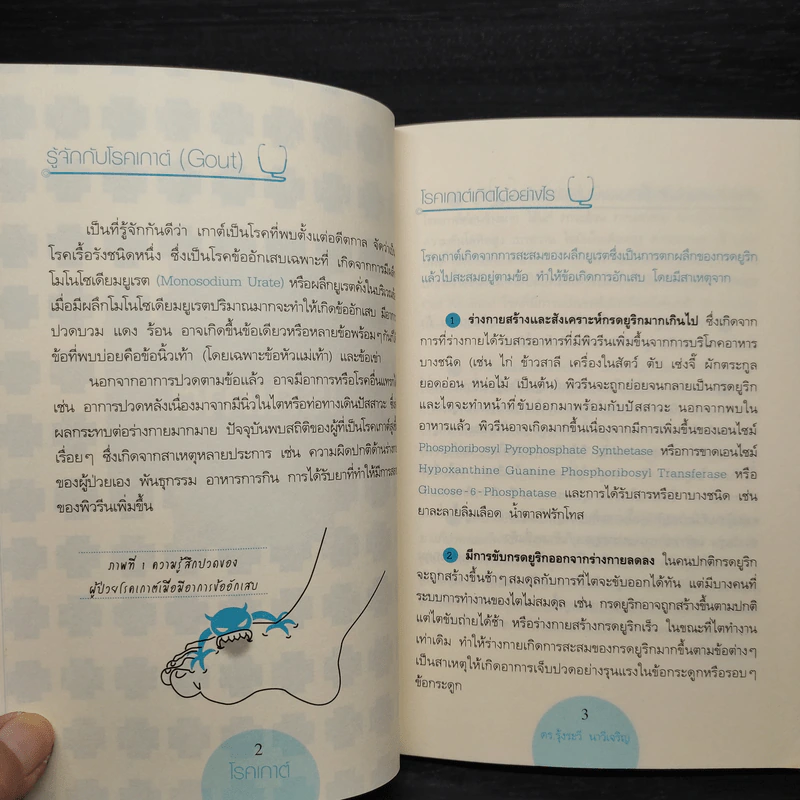 รู้จักกับโรคเกาต์ (Gout)
เป็นที่รู้จักกันดีว่า เกาต์เป็นโรคที่พบตั้งแต่อดีตกาล จัดว่าเป็น
โรคเรื้อรังชนิดหนึ่ง ซึ่งเป็นโรคข้ออักเสบเฉพาะที่ เกิดจากการมี
โมโนโซเดียมยูเรต (Monosodium Urate) หรือผลึกยูเรตคั่งในบริเวณ
เมื่อมีผลึกโมโนโซเดียมยูเรตปริมาณมากจะทำให้เกิดข้ออักเสบ
ปวดบวม แดง ร้อน อาจเกิดขึ้นข้อเดียวหรือหลายข้อพร้อมๆ กัน
ข้อที่พบบ่อยคือข้อนิ้วเท้า (โดยเฉพาะข้อหัวแม่เท้า) และข้อเข่า
นอกจากอาการปวดตามข้อแล้ว อาจมีอาการหรือโรคอื่น
เช่น อาการปวดหลังเนื่องมาจากมีนิ่วในไตหรือท่อทางเดินปัสสาวะ
ผลกระทบต่อร่างกายมากมาย ปัจจุบันพบสถิติของผู้ที่เป็นโรคเกาต์
เรื่อยๆ ซึ่งเกิดจากสาเหตุหลายประการ เช่น ความผิดปกติด้าน
ของผู้ป่วยเอง พันธุกรรม อาหารการกิน การได้รับยาที่ทำให้มีการ
ของพิวรีนเพิ่มขึ้น
ภาพที่ 1 ความรู้สึกปวดของ
ผู้ป่วยโรคเกาต์เมื่อมีอาการข้ออักเสบ
2
โรคเกาต์
โรคเกาต์เกิดได้อย่างไร
โรคเกาต์เกิดจากการสะสมของผลึกยูเรตซึ่งเป็นการตกผลึกของกรดยูริก
แล้วไปสะสมอยู่ตามข้อ ทำให้ข้อเกิดการอักเสบ โดยมีสาเหตุจาก
1 ร่างกายสร้างและสังเคราะห์กรดยูริกมากเกินไป ซึ่งเกิดจาก
การที่ร่างกายได้รับสารอาหารที่มีพิวรีนเพิ่มขึ้นจากการบริโภคอาหาร
บางชนิด (เช่น ไก่ ข้าวสาลี เครื่องในสัตว์ ตับ เซ่งจี๊ ผักตระกูล
ยอดอ่อน หน่อไม้ เป็นต้น) พิวรีนจะถูกย่อยจนกลายเป็นกรดยูริก
และไตจะทำหน้าที่ขับออกมาพร้อมกับปัสสาวะ นอกจากพบใน
อาหารแล้ว พิวรีนอาจเกิดมากขึ้นเนื่องจากมีการเพิ่มขึ้นของเอนไซม์
Phosphoribosyl Pyrophosphate Synthetase หรือการขาดเอนไซม์
Hypoxanthine Guanine Phosphoribosyl Transferase หรือ
Glucose-6-Phosphatase และการได้รับสารหรือยาบางชนิด เช่น
ยาละลายลิ่มเลือด น้ำตาลฟรักโทส
2 มีการขับกรดยูริกออกจากร่างกายลดลง ในคนปกติกรดยูริก
จะถูกสร้างขึ้นช้าๆ สมดุลกับการที่ไตจะขับออกได้ทัน แต่มีบางคนที่
ระบบการทำงานของไตไม่สมดุล เช่น กรดยูริกอาจถูกสร้างขึ้นตามปกติ
แต่ไตขับถ่ายได้ช้า หรือร่างกายสร้างกรดยูริกเร็ว ในขณะที่ไตทำงาน
เท่าเดิม ทำให้ร่างกายเกิดการสะสมของกรดยูริกมากขึ้นตามข้อต่างๆ
เป็นสาเหตุให้เกิดอาการเจ็บปวดอย่างรุนแรงในข้อกระดูกหรือรอบๆ
ข้อกระดูก
3
ดร.รุ้งระวี นาวีเจริญ